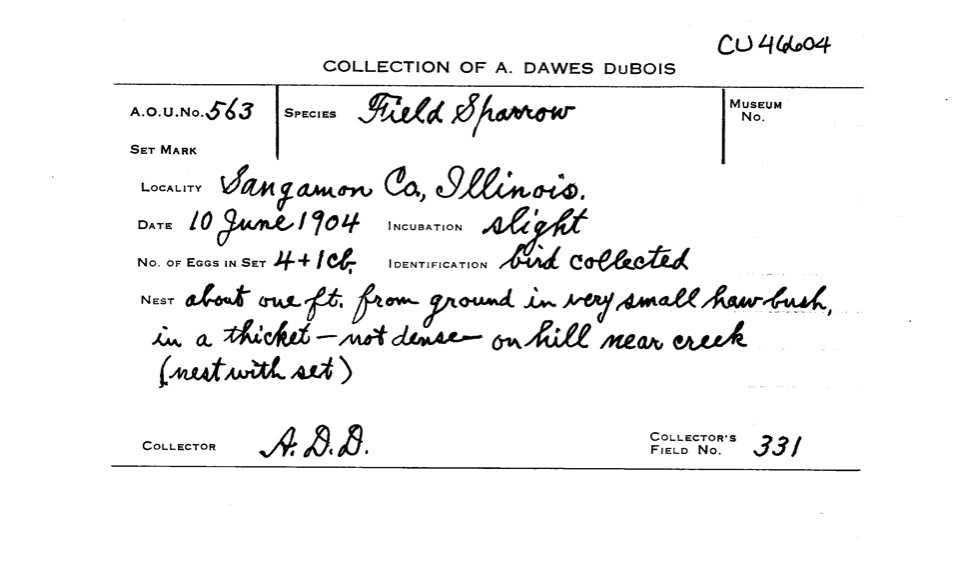 CU46604
COLLECTION OF A. DAWES DUBOIS
A.O.U.No. 563 SPECIES Field Sparrow MUSEUM No.
SET MARK
LOCALITY Sangamon Co., Illinois.
DATE 10 June 1904 INCUBATION slight
NO. OF EGGS IN SET 4+1cb. IDENTIFICATION bird collected
NEST about one ft. from ground in very small haw bush,
in a thicket — not dense — on hill near creek
(nest with set)
COLLECTOR A.D.D. COLLECTOR'S FIELD NO. 331